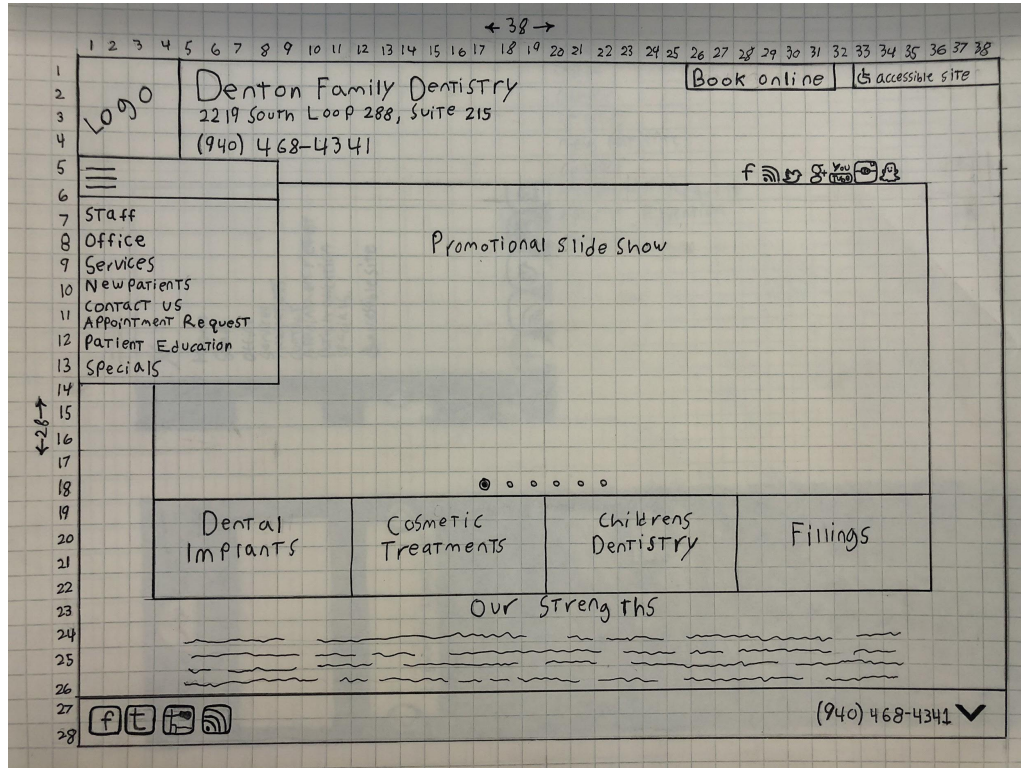 ← 38 →
1 2 3 4 5 6 7 8 9 10 11 12 13 14 15 16 17 18 19 20 21 22 23 24 25 26 27 28 29 30 31 32 33 34 35 36 37 38
1
2
3
4
5
6
7
8
9
10
11
12
13
14
15
16
17
18
19
20
21
22
23
24
25
26
27
28
← 28 →
Logo
Denton Family Dentistry
2219 South Loop 288, Suite 215
(940) 468-4341
Book online
accessible site
f g+ You Tube
Staff
Office
Services
New Patients
Contact us
Appointment Request
Patient Education
Specials
Promotional Slide Show
Dental
Implants
Cosmetic
Treatments
Childrens
Dentistry
Fillings
Our Strengths
f t
(940) 468-4341